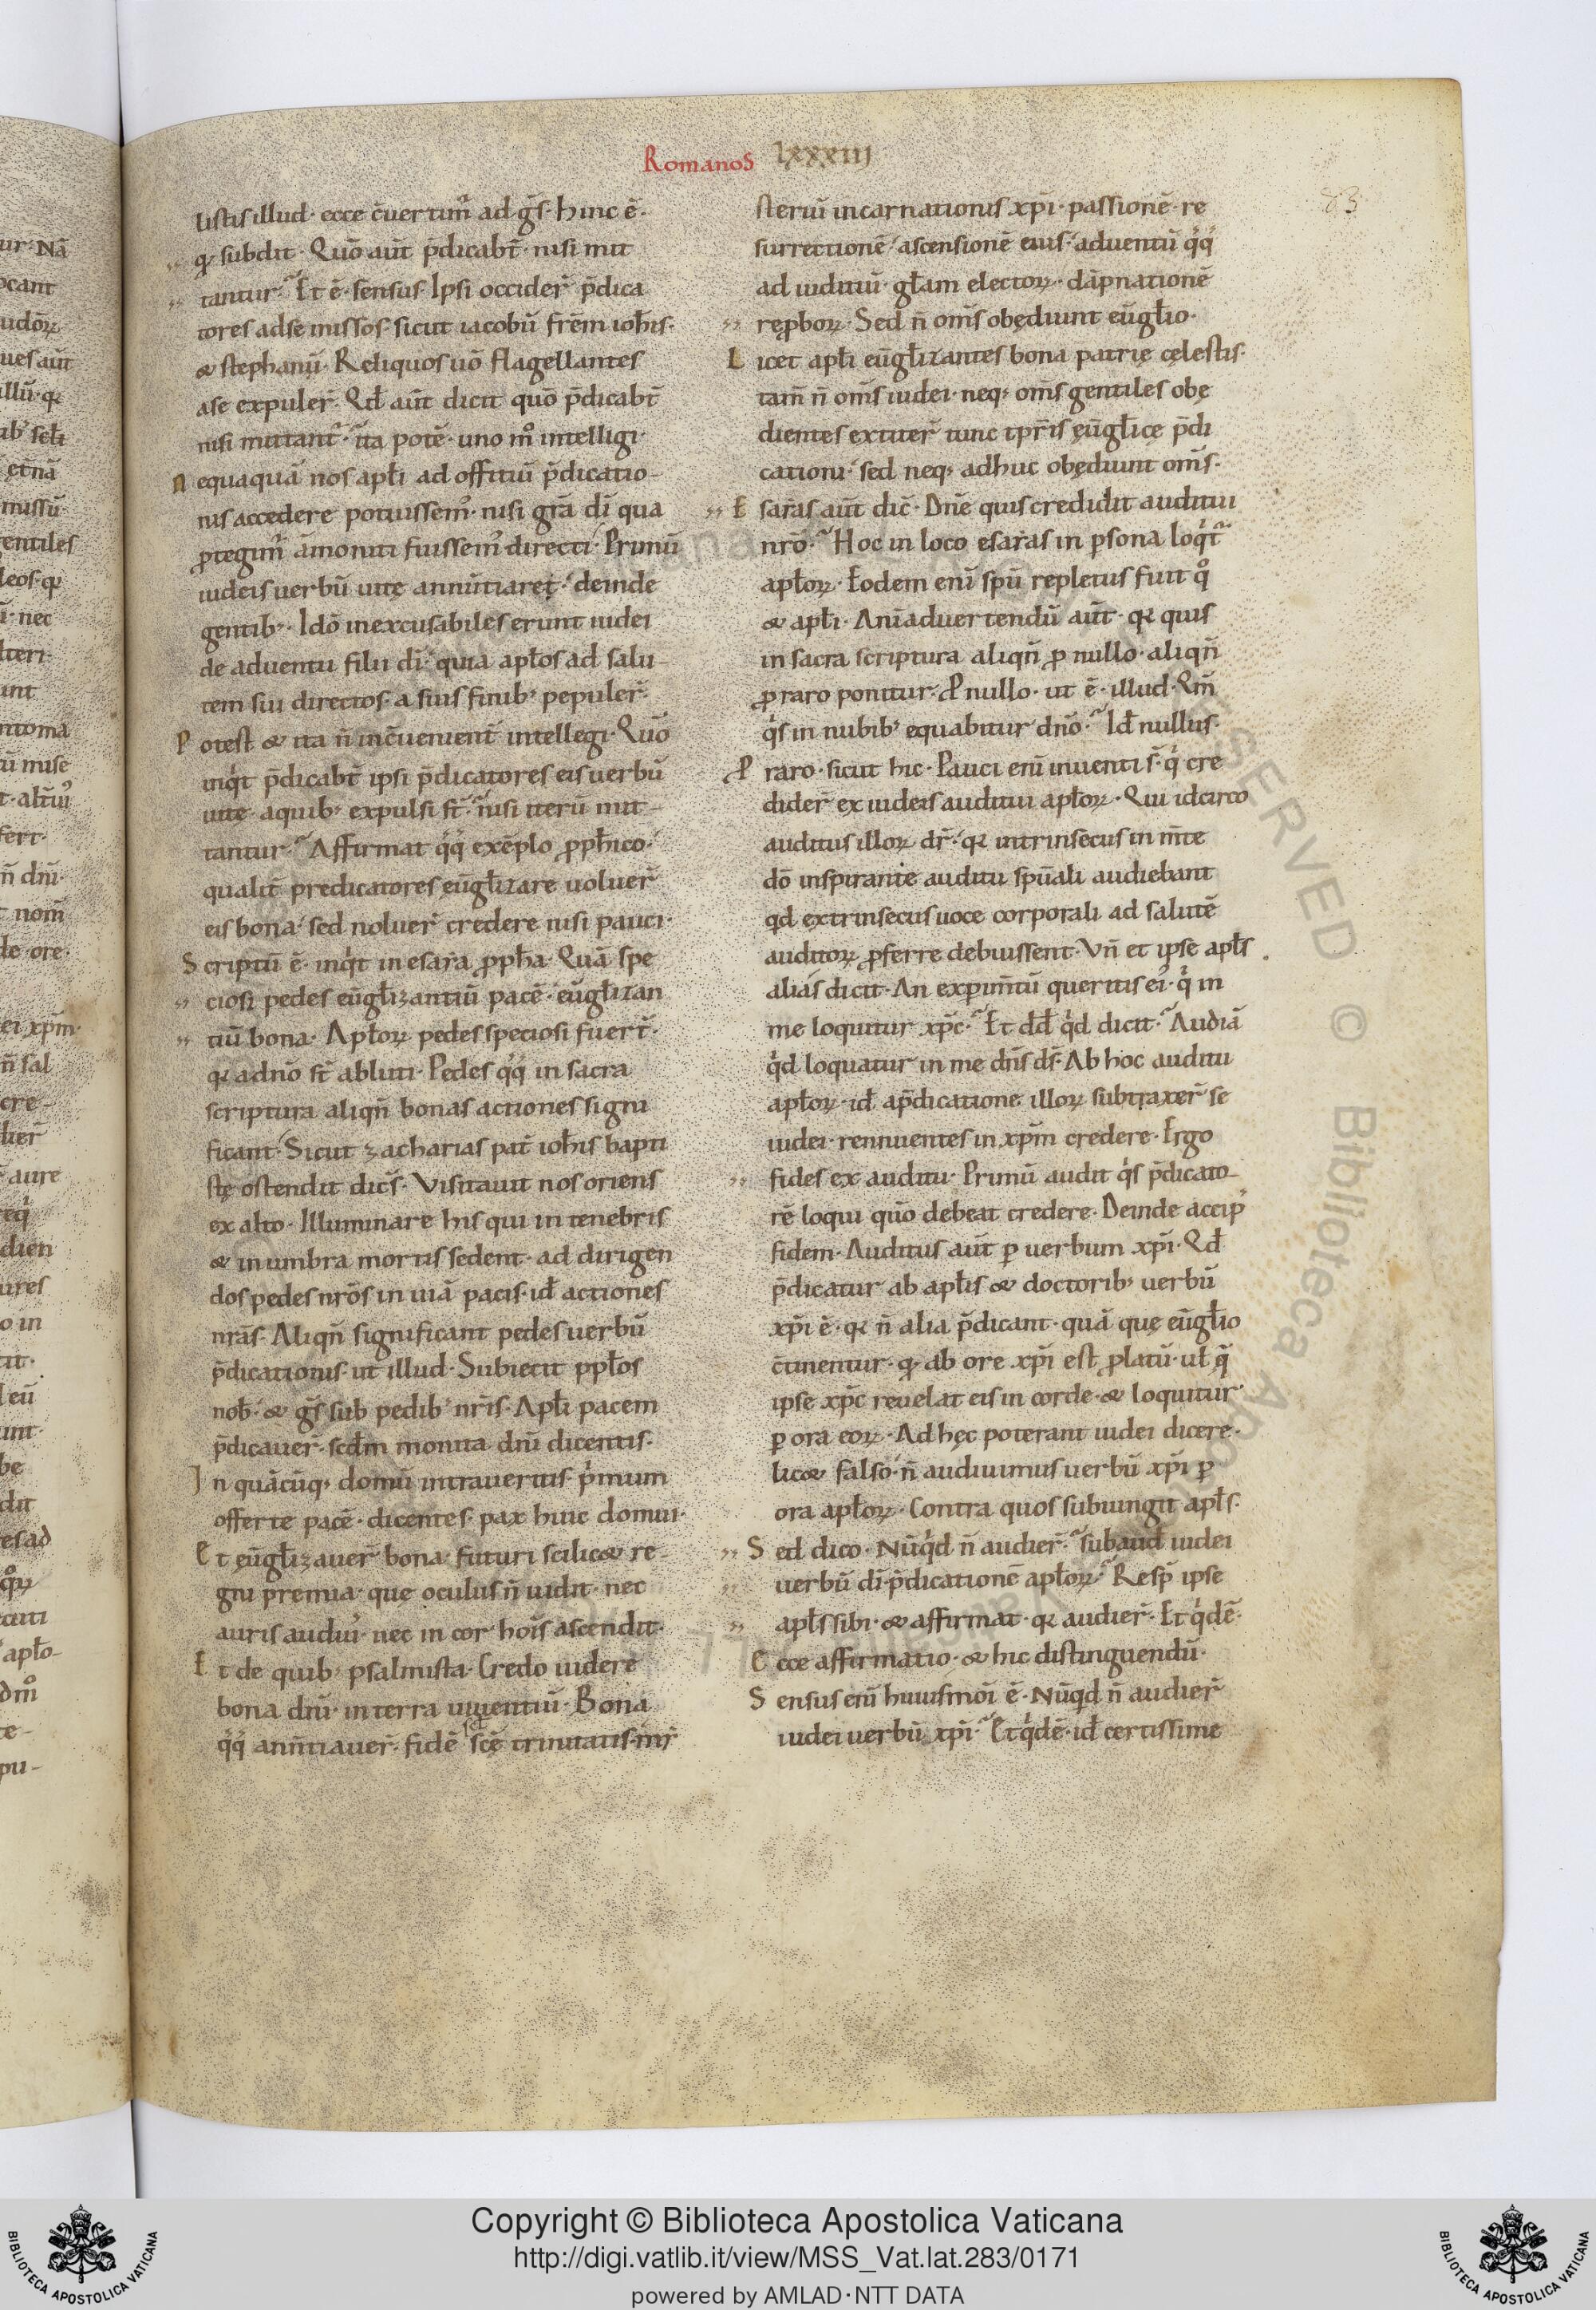 Romanos lxxxiii
83
listis illud· ecce c̄uertim᷒ ad ḡs· hinc ē·
qꝛ subdit· Quō aūt p̄dicabt̄ nisi mit
tantur· Et ē· sensus· Ipsi occider̄ p̄dica
tores ad se missos· sicut iacobū frēm ioh̄is·
& stephanū· Reliquos uō flagellantes
a se expuler̄· Qđ aūt dicit quō p̄dicabt̄
nisi mittant᷒· ita potē· uno mͦ intelligi·
Nequaquā nos apl̄i ad offitiū p̄dicatio-
nis accedere potuissem᷒· nisi grā dī qua
ꝓtegim᷒ āmoniti fuissem᷒ directi· Primū
iudeis uerbū uitę annūtiaret· deinde
gentib᷒· Idō inexcusabiles erunt iudei
de aduentu filii dī· quia apl̄os ad salu-
tem sui directos· a suis finib᷒ pepuler̄·
Potest & ita n̄ inc̄uenient̄ intellegi· Quō
inqͥt p̄dicabt̄ ipsi p̄dicatores eis uerbū
uitę· a quib᷒ expulsi st̄· nisi iterū mit-
tantur· Affirmat qͦqͥ exēplo ꝓph̄ico·
qualit̄ predicatores eūgl̄izare uoluer̄
eis bona· sed noluer̄ credere nisi pauci·
Scriptū ē· inqͥt in esaīa ꝓph̄a· Quā spe
ciosi pedes eūgl̄izantiū pacē· eūgl̄izan
tiū bona· Apl̄oꝝ pedes speciosi fuert̄·
qꝛ a dn̄o st̄ abluti· Pedes qͦqͥ in sacra
scriptura aliqn̄ bonas actiones signi
ficant· Sicut zacharias pat̄ ioh̄is bapti
stę ostendit dic̄s· Visitauit nos oriens
ex alto· Illuminare his qui in tenebris
& in umbra mortis sedent· ad dirigen
dos pedes nrōs in uiā pacis· id̄ actiones
nrās· Aliqn̄ significant pedes uerbū
p̄dicationis· ut illud· Subiecit ppl̄os
nob̄· & ḡs sub pedib᷒ nr̄is· Apl̄i pacem
p̄dicauer̄· scđm monita dn̄i dicentis·
In quācūq; domū intraueritis· pͥmum
offerte pacē· dicentes· pax huic domui·
Et eūgl̄izauer̄ bona· futuri scilic& re-
gni premia· que oculus n̄ uidit· nec
auris audiuͥ· nec in cor hoīs ascendit·
Et de quib᷒ psalmista· Credo uidere
bona dn̄i· in terra uiuentiū· Bona
qͦqͥ annt̄iauer̄· fidē scę̄ trinitatis· mī
steriū incarnationis xp̄i· passionē· re
surrectionē· ascensionē eius· aduentū qͦqͥ
ad iuditiū· gl̄am electoꝝ· dāpnationē
reꝓboꝝ· Sed n̄ om̄s obędiunt eūgl̄io·
Licet apl̄i eūgl̄izantes bona patrię cęlestis·
tam̄ n̄ om̄s iudei· neq; om̄s gentiles obę
dientes extiter̄ tunc tp̄ris ęūgl̄icę p̄di
cationi· sed neq; adhuc obędiunt om̄s·
Esaīas aūt dic̄· Dn̄e quis credidit auditui
nrō· Hoc in loco esaīas in ꝑsona loqͥt᷒
apl̄oꝝ· Eodem enī spū repletus fuit qͦ
& apl̄i· Anīaduertendū aūt· qꝛ quis
in sacra scriptura aliqn̄ ꝓ nullo· aliqn̄
ꝓ raro ponitur· ꝓ nullo· ut ē· illud· Qm̄
qͥs in nubib᷒ equabitur dn̄o· Id̄ nullus·
ꝓ raro· sicut hic· Pauci enī inuenti s̄· qͥ cre
dider̄ ex iudeis auditui apl̄oꝝ· Qui idcirco
auditus illoꝝ dr̄· qꝛ intrinsecus in m̄te
dō inspirante auditu spūali audiebant
qđ extrinsecus uoce corporali ad salutē
auditoꝝ ꝓferre debuissent· Vn̄ et ipse apl̄s
alias dicit· An exꝑim̄tū queritis ei᷒· qͥ in
me loquitur xp̄c· Et dđ qͥd dicit· Audiā
qͥd loquatur in me dn̄s ds̄· Ab hoc auditu
apl̄oꝝ· id̄ a p̄dicatione illoꝝ subtraxer̄ se
iudei· rennuentes in xp̄m credere· Ergo
fides ex auditu· Primū audit qͥs p̄dicato-
rē loqui quō debeat credere· Deinde accip᷒
fidem· Auditus aūt ꝑ uerbum xp̄i· Qđ
p̄dicatur ab apl̄is & doctorib᷒ uerbū
xp̄i ē· qꝛ n̄ alia p̄dicant· quā quę eūgl̄io
c̄tinentur· qꝛ ab ore xp̄i est ꝓlatū· ul̄ q̄
ipse xp̄c reuelat eis in corde· & loquitur
ꝑ ora eoꝝ· Ad hęc poterant iudei dicere·
lic& falso· n̄ audiuimus uerbū xp̄i ꝑ
ora apl̄oꝝ· Contra quos subiungit apl̄s·
Sed dico· Nūqͥd n̄ audier̄· subaud̄ iudei
uerbū dī· p̄dicationē apl̄oꝝ· Resp̄ ipse
apl̄s sibi· & affirmat· qꝛ audier̄· Et qͥdē·
Ecce affirmatio· & hic distinguendū·
Sensus enī huiusmōi ē· Nūqͥd n̄ audier̄
iudei uerbū xp̄i· Et qͥdē· id̄ certissime
Copyright © Biblioteca Apostolica Vaticana
http://digi.vatlib.it/view/MSS_Vat.lat.283/0171
powered by AMLAD·NTT DATA